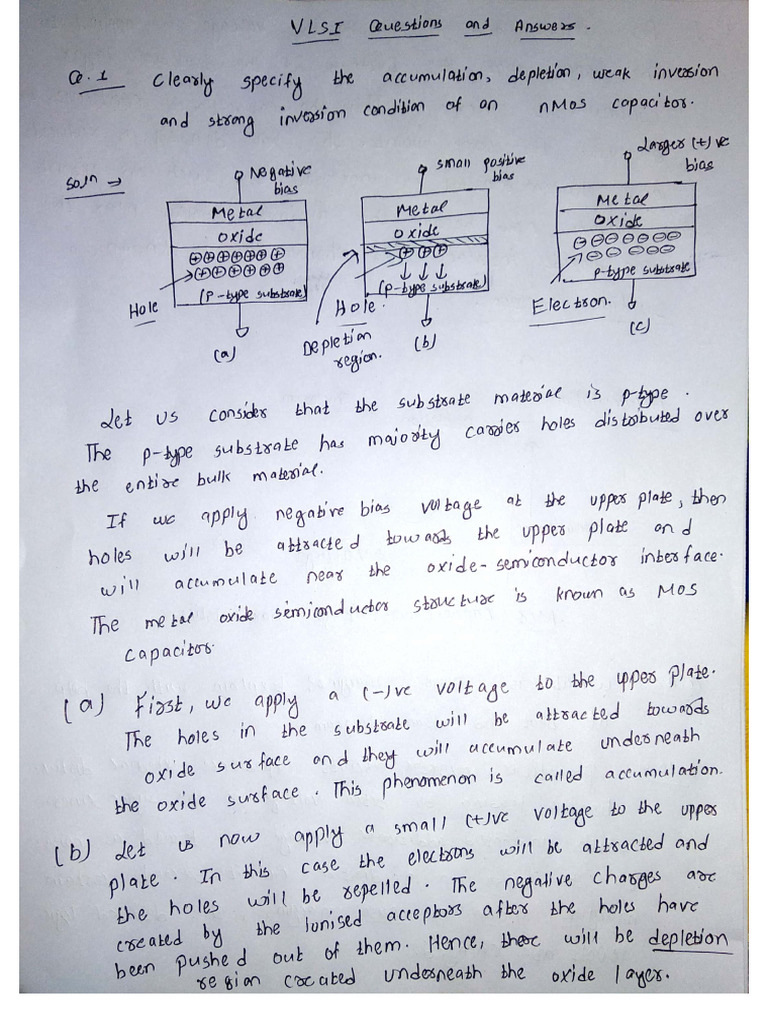 VLSI Questions and Answers.
Q.1 Clearly specify the accumulation, depletion, weak inversion
and strong inversion condition of an nMos capacitor.
Soln →
Negative bias
Metal
Oxide
(P-type substrate)
Hole
(a)
small positive bias
Metal
Oxide
(p-type substrate)
Hole.
Depletion region.
(b)
Larger (+)ve bias
Metal
Oxide
p-type substrate
Electron.
(c)
Let us consider that the substrate material is p-type.
The p-type substrate has majority carrier holes distributed over
the entire bulk material.
If we apply negative bias voltage at the upper plate, then
holes will be attracted towards the upper plate and
will accumulate near the oxide-semiconductor interface.
The metal oxide semiconductor structure is known as MOS
capacitor.
(a) First, we apply a (-)ve voltage to the upper plate.
The holes in the substrate will be attracted towards
oxide surface and they will accumulate underneath
the oxide surface. This phenomenon is called accumulation.
(b) Let us now apply a small (+)ve voltage to the upper
plate. In this case the electrons will be attracted and
the holes will be repelled. The negative charges are
created by the Ionised acceptors after the holes have
been pushed out of them. Hence, there will be depletion
region created underneath the oxide layer.